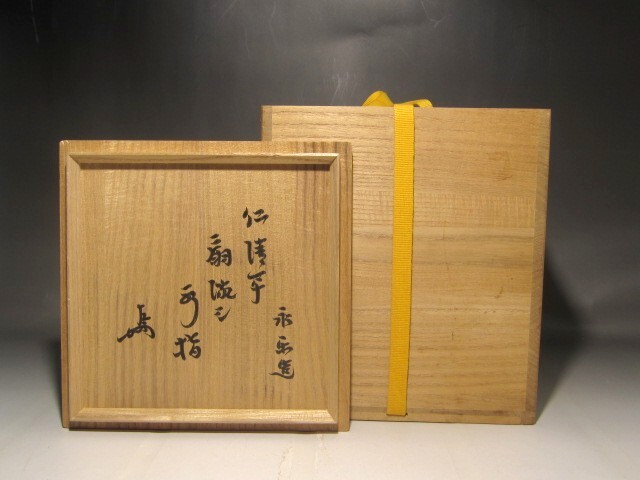 仁清写
扇流シ
水指
永楽造